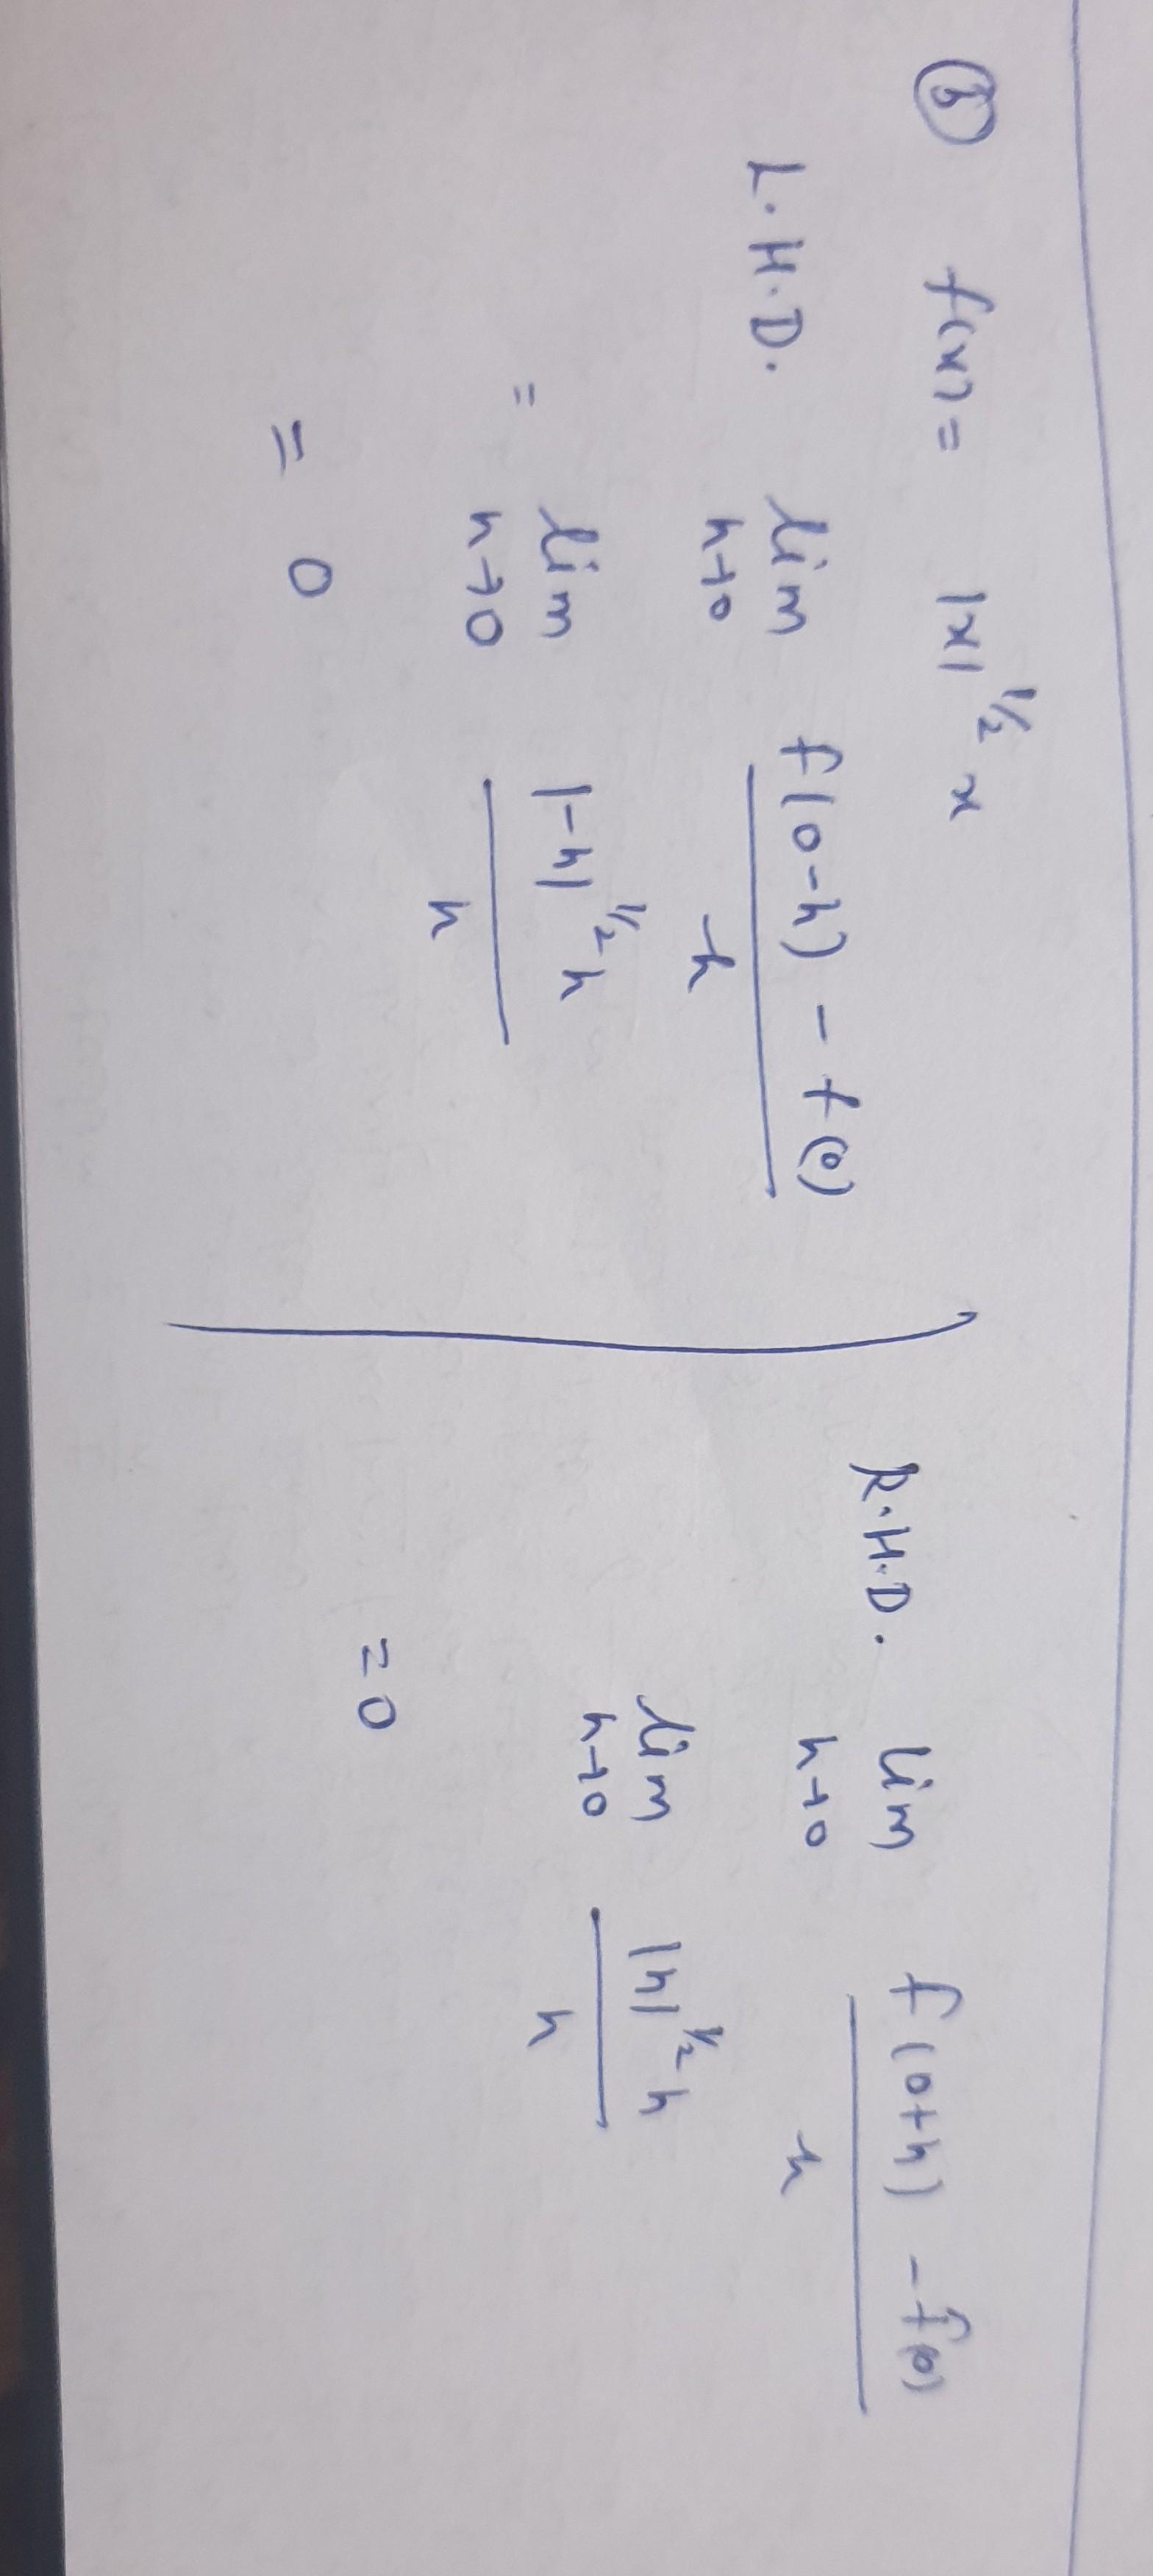 (b) f(x) = |x|^{1/2} x
L.H.D. lim_{h→0} \frac{f(0-h) - f(0)}{-h}
= lim_{h→0} \frac{|-h|^{1/2} h}{h}
= 0
R.H.D. lim_{h→0} \frac{f(0+h) - f(0)}{h}
lim_{h→0} \frac{|h|^{1/2} h}{h}
= 0